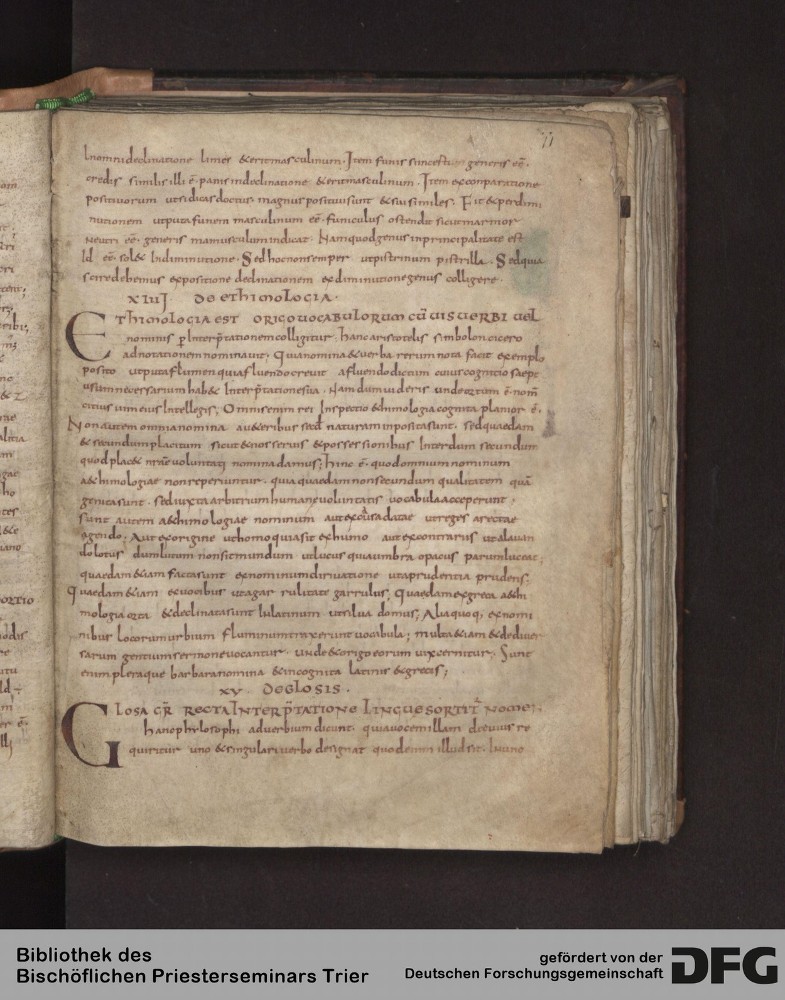 77
In nomini declinatione limes & erit masculinum. Item funis si incerti generis eē.
credis similis illi ē panis in declinatione & erit masculinum. Item ex conparatione
positivorum ut siduas doctus magnus posituisunt & sui similes. Fit & per dimi
nutionem utputa funem masculinum eē funiculus ostendit sicut marmor
neutri eē generis marmusculum indicat. Nam quod genus in principalitate est
Id eē sol& In diminutione. Sed hoc non semper ut pistrinum pistrilla. Sed quia
scire debemus expositione declinationem ex diminutione genus colligere.
xiiij. De ethimologia.
Ethimologia est origo vocabulorum cū vis verbi vel
nominis p Interp̄tationem colligitur. hanc aristotelis simbolon cicero
adnotationem nominavit; Quia nomina & verba rerum nota facit exemplo
posito utputa flumen quia fluendo crevit a fluendo dictum cuius cognitio saepe
usum necessarium hab& Interp̄tatione sua. Nam dum videris unde ortum ē nom̄
citius vim eius Intellegis; Omnis enim rei Inspectio &himologia cognita planior ē.
Non autem omnia nomina a veteribus scd naturam inposita sunt. sed quaedam
& secundum placitum sicut & nos servis & possessionibus Interdum secundum
quod plac& nr̄ae voluntati nomina damus; hinc ē quod omnium nominum
a&himologiae non reperiuntur. quia quaedam non secundum qualitatem qua
genita sunt. sed iuxta arbitrium humanae voluntatis vocabula acceperunt;
Sunt autem a&himologiae nominum aut ex causa datae ut reges a recte
agendo. Aut ex origine ut homo quia sit ex humo aut ex contrariis ut a lavan
do lutus dum lutum non sit mundum ut lucus quia umbra opacus parum luceat;
quaedam &iam facta sunt ex nominum dirivatione ut a prudentia prudens;
Quaedam &iam ex vocibus ut a garrulitate garrulus; Quaedam ex greca a&hi
mologia orta & declinata sunt In latinum ut silva domus; Alia quoq, ex nomi
nibus locorum urbium fluminum traxerunt vocabula; multa &iam & de diver
sarum gentium sermone vocantur. unde & origo eorum vix cernitur. Sunt
enim pleraque barbara nomina & incognita latinis & grecis;
xv. De glosis.
Glosa gr̄ recta Interp̄tatione linguae sortit̄ nomē;
hanc phylosophi adverbium dicunt. quia vocem illam de cuius re
quiritur uno & singulari verbo designat quod enim illud sit. In uno
Bibliothek des
Bischöflichen Priesterseminars Trier
gefördert von der
Deutschen Forschungsgemeinschaft
DFG